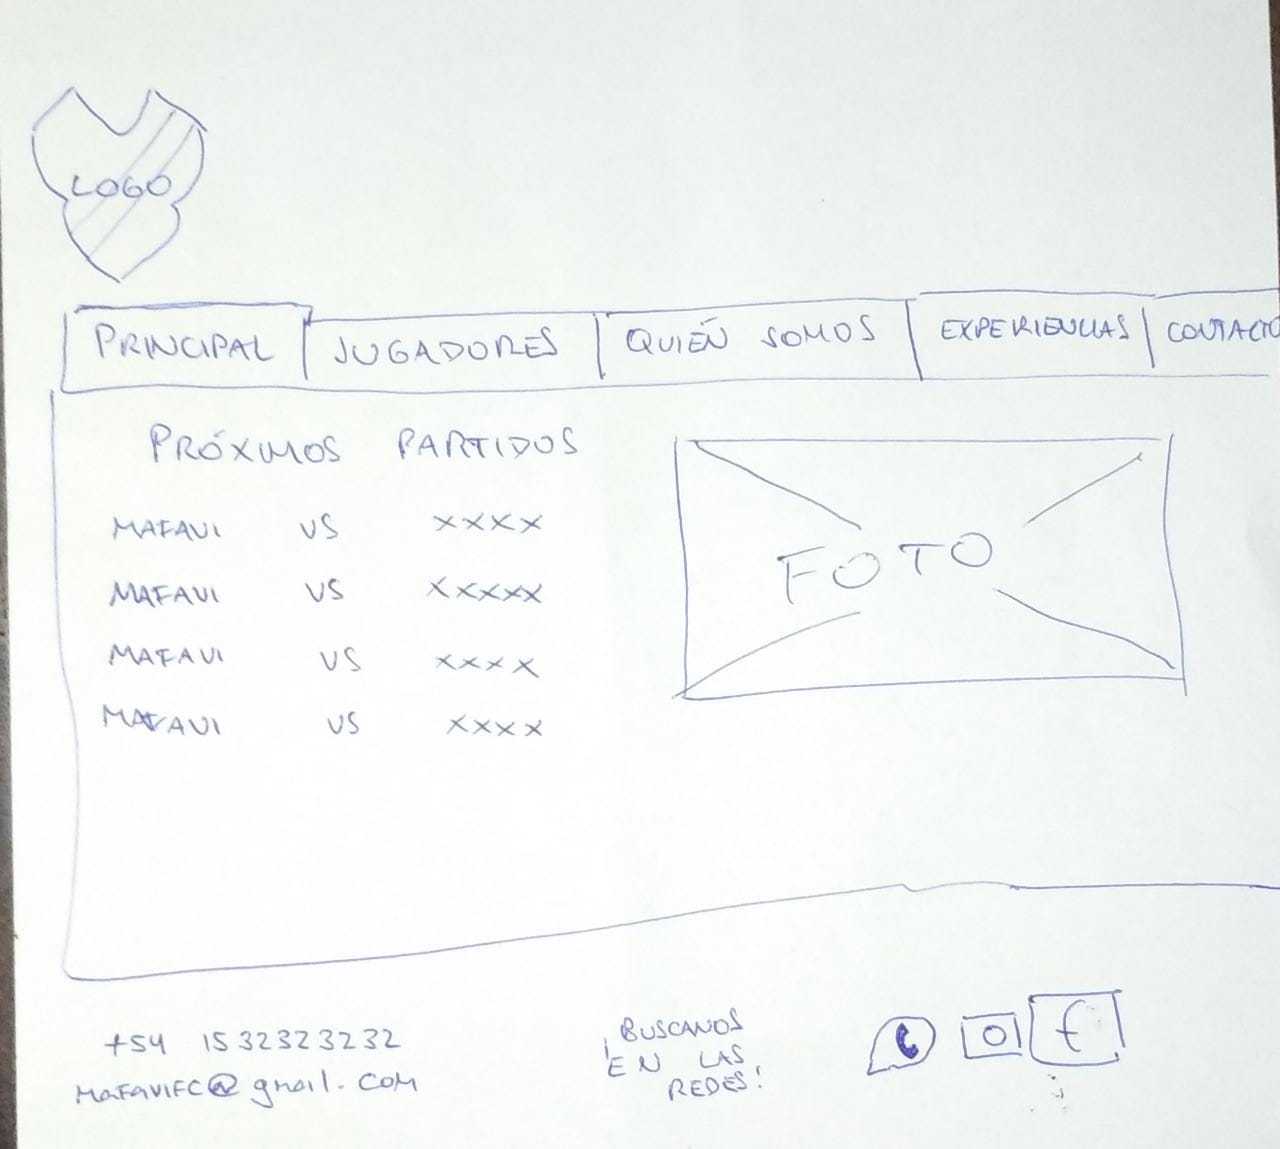 LOGO
PRINCIPAL JUGADORES QUIÉN SOMOS EXPERIENCIAS CONTACTO
PRÓXIMOS PARTIDOS
MAFAVI VS XXXX
MAFAVI VS XXXXX
MAFAVI VS XXXX
MAFAVI VS XXXX
FOTO
+54 1532323232
MAFAVIFC@gmail.com
¡BUSCANOS
EN LAS
REDES!
f